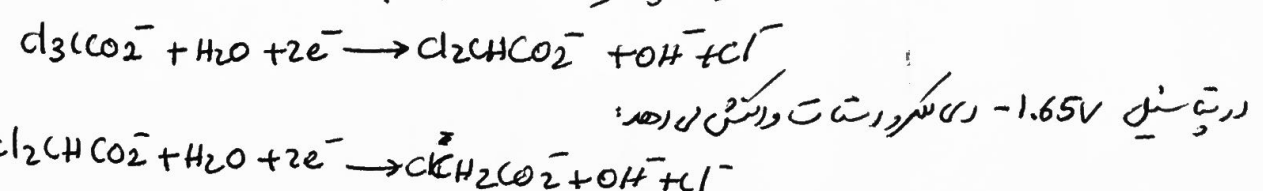 Cl3CCO2⁻ + H2O + 2e⁻ → Cl2CHCO2⁻ + OH⁻ + Cl⁻
در پتانسیل -1.65V دی کلرواستات واکنش می دهد:
Cl2CHCO2⁻ + H2O + 2e⁻ → ClCH2CO2⁻ + OH⁻ + Cl⁻